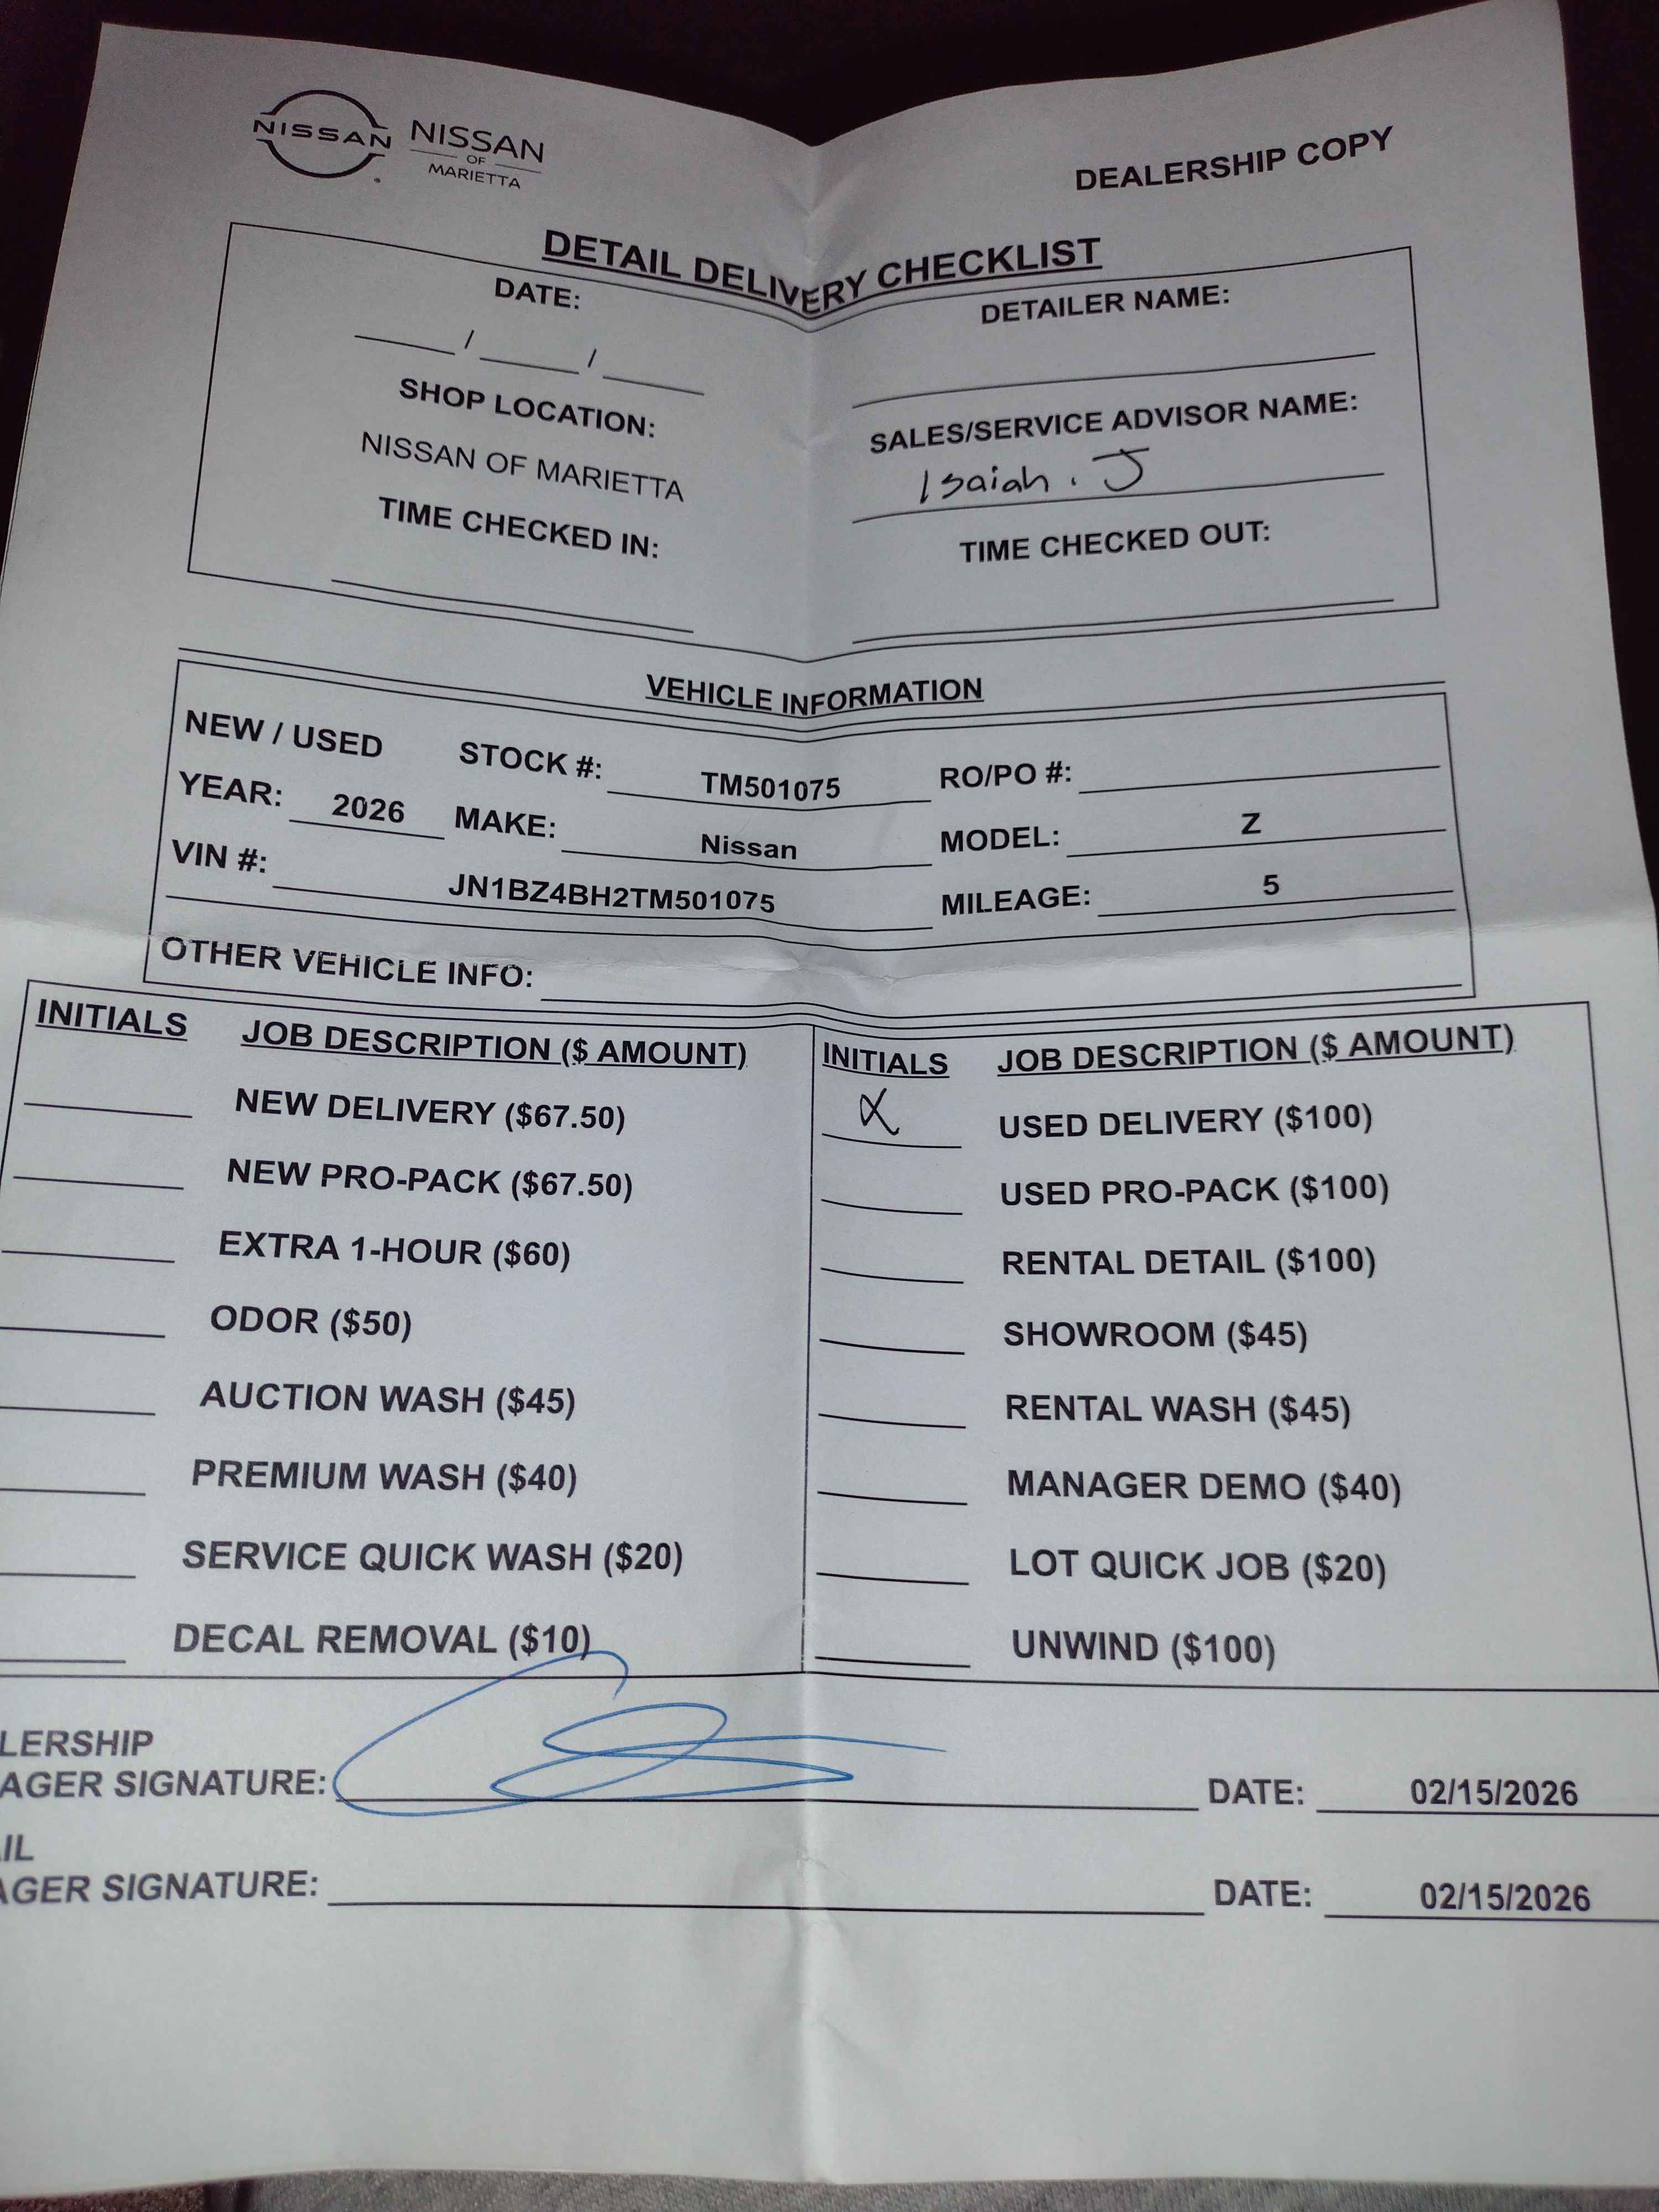 NISSAN NISSAN
OF
MARIETTA
DEALERSHIP COPY
DETAIL DELIVERY CHECKLIST
DATE:
/ /
DETAILER NAME:
SHOP LOCATION:
NISSAN OF MARIETTA
SALES/SERVICE ADVISOR NAME:
Isaiah. J
TIME CHECKED IN:
TIME CHECKED OUT:
VEHICLE INFORMATION
NEW / USED STOCK #: TM501075 RO/PO #:
YEAR: 2026 MAKE: Nissan MODEL: Z
VIN #: JN1BZ4BH2TM501075 MILEAGE: 5
OTHER VEHICLE INFO:
INITIALS JOB DESCRIPTION ($ AMOUNT)
NEW DELIVERY ($67.50)
NEW PRO-PACK ($67.50)
EXTRA 1-HOUR ($60)
ODOR ($50)
AUCTION WASH ($45)
PREMIUM WASH ($40)
SERVICE QUICK WASH ($20)
DECAL REMOVAL ($10)
INITIALS JOB DESCRIPTION ($ AMOUNT)
X USED DELIVERY ($100)
USED PRO-PACK ($100)
RENTAL DETAIL ($100)
SHOWROOM ($45)
RENTAL WASH ($45)
MANAGER DEMO ($40)
LOT QUICK JOB ($20)
UNWIND ($100)
LERSHIP
AGER SIGNATURE: DATE: 02/15/2026
IL
AGER SIGNATURE: DATE: 02/15/2026